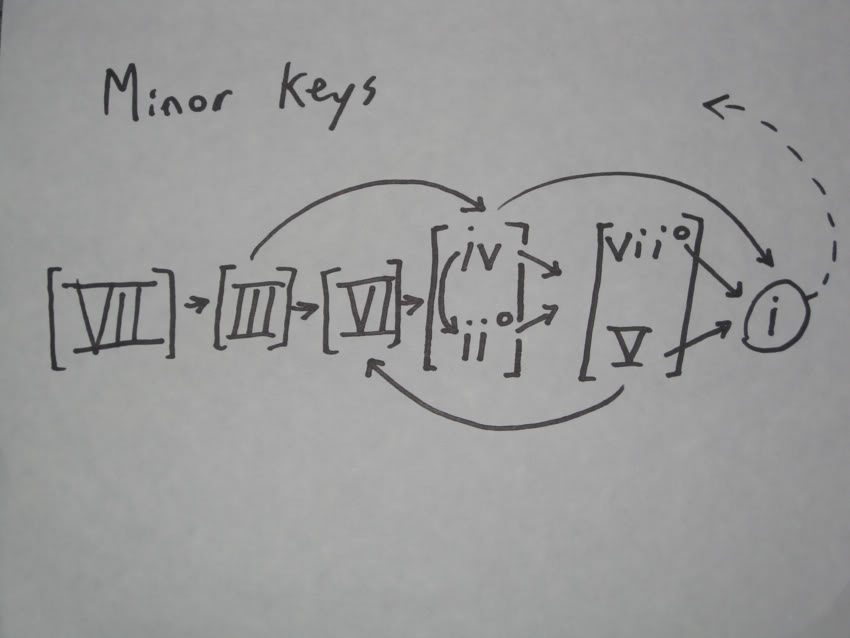 Minor Keys
[VII] → [III] → [VI] → [iv ii°] [vii° V] → i